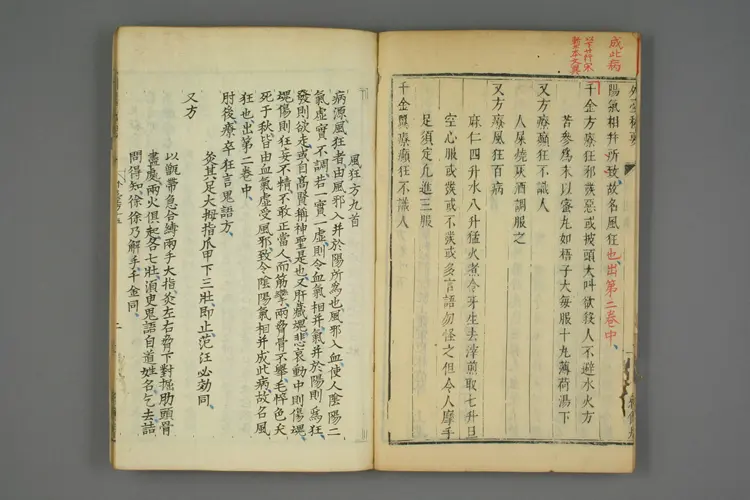 成此病
外臺秘要
陽氣相并所致故名風狂也出第二卷中
千金方療狂邪發惡或披頭大叫欲殺人不避水火方
苦參為末以蜜丸如梧子大每服十丸薄荷湯下
又方療癲狂不識人
人屎燒灰酒調服之
又方療風狂百病
麻仁四升水八升猛火煮令牙生去滓煎取七升旦
空心服或發或不發或多言語勿怪之但令人摩手
足須定凡進三服
千金翼療癲狂不識人
風狂方九首
病源風狂者由風邪入并於陽所為也風邪入血使人陰陽二
氣虛實不調若一實一虛則令血氣相并氣并於陽則為狂
發則欲走或自高賢稱神聖是也又肝藏魂悲哀動中則傷魂
魂傷則狂妄不精不敢正當人而筋攣兩脅骨不舉毛悴色夭
死于秋皆由血氣虛受風邪致令陰陽氣相并成此病故名風
狂也出第二卷中
肘後療卒狂言鬼語方
灸其足大拇指爪甲下三壯即止范汪必効同
又方
以甑帶急合縛兩手大指灸左右脅下對掘肋頭骨
盡處兩火俱起各七壯須臾鬼語自道姓名乞去詰
問得知徐徐乃解手千金同